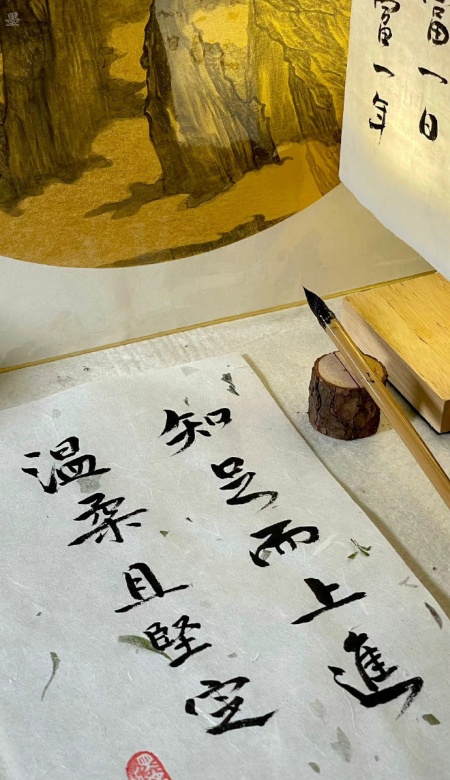 知足而上進
温柔且堅定
富一日
富一年
墨